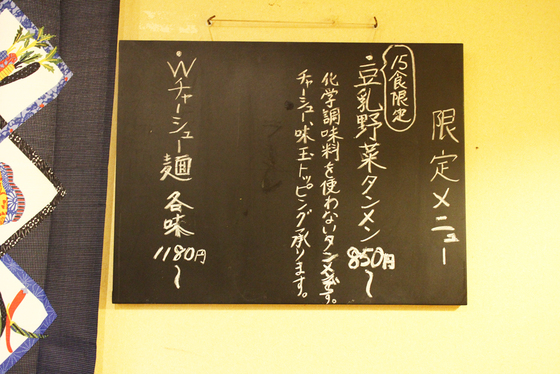 限定メニュー
15食限定
・豆乳野菜タンメン 850円〜
化学調味料を使わないタンメンです。
チャーシュー、味玉トッピング承ります。
・Wチャーシュー麺 各味 1180円〜